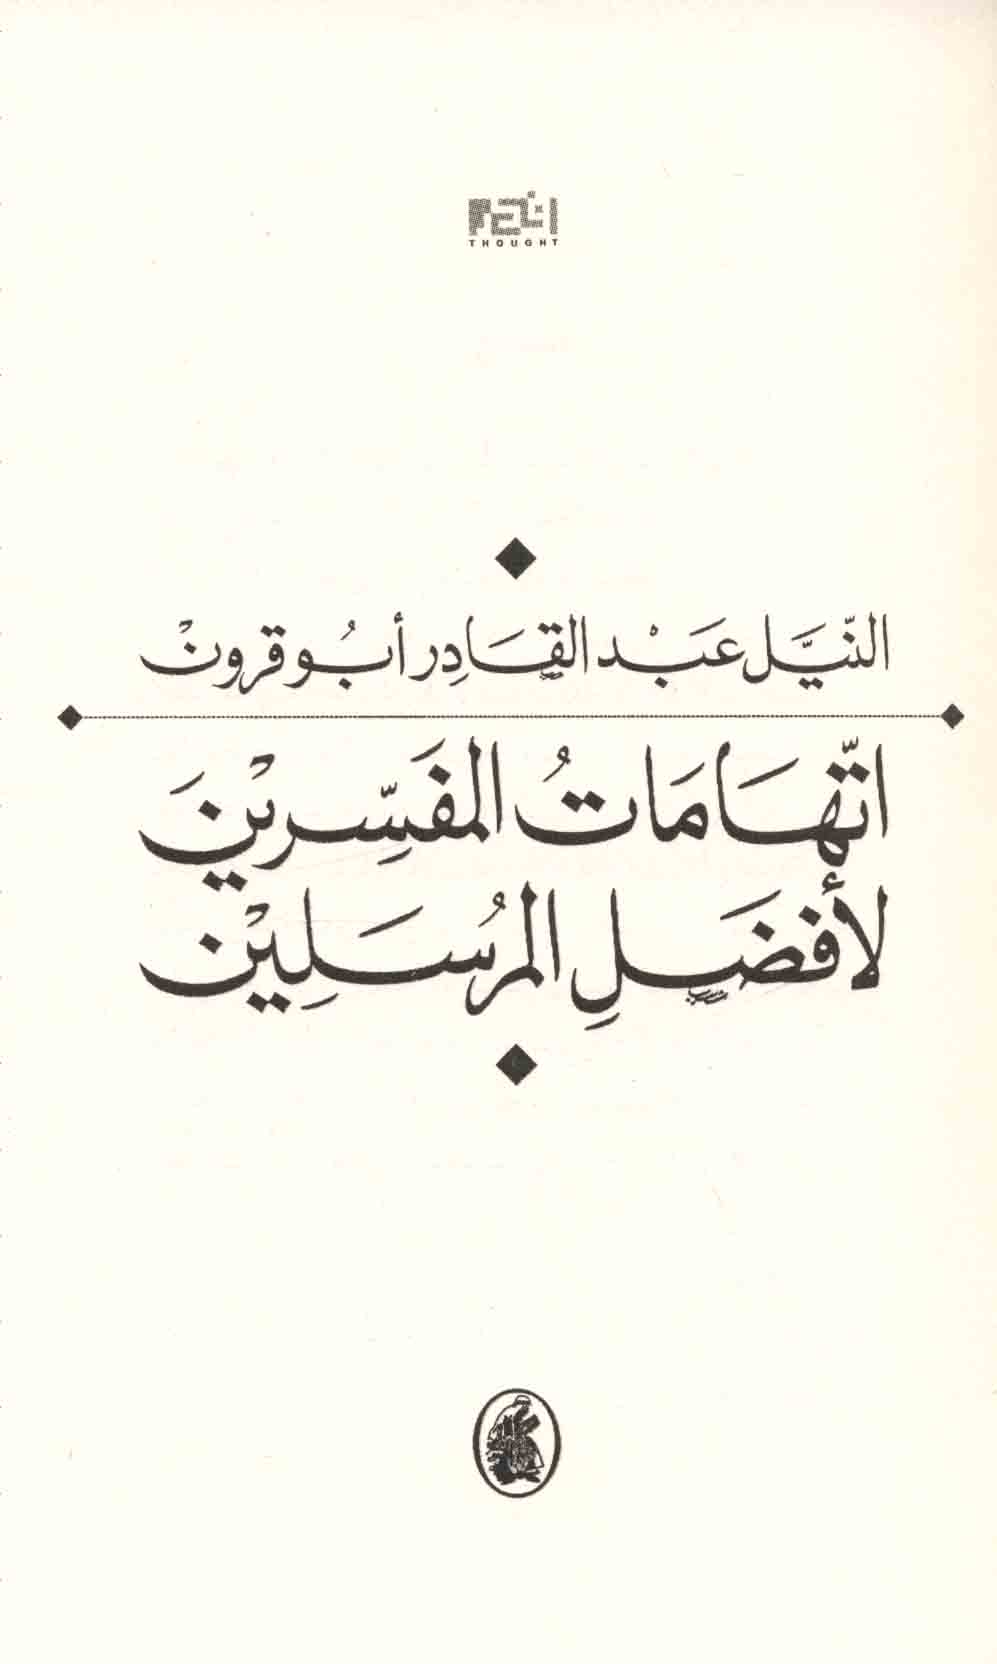 THOUGHT
النيَّل عَبْد القَادِر أبُو قرونْ
اتّهَامَاتُ المفَسِّرِيْنَ
لأفضَلِ المرسَلِيْن